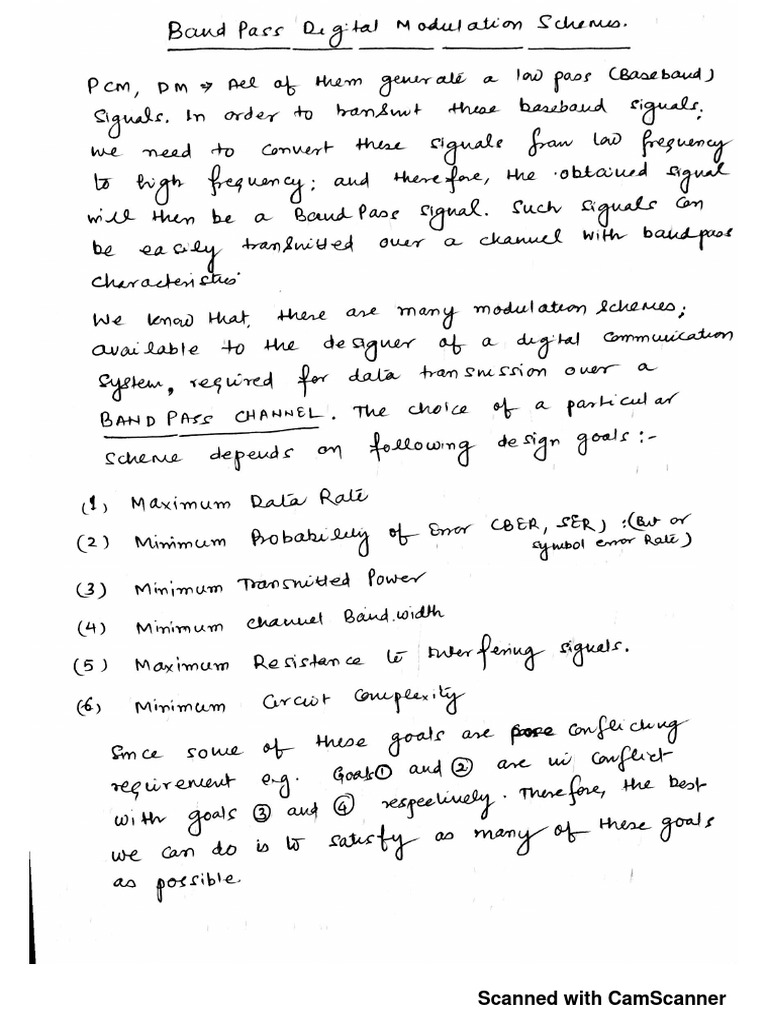 Band Pass Digital Modulation Schemes.
PCM, DM → All of them generate a low pass (Baseband)
Signals. In order to transmit these baseband signals;
we need to convert these signals from low frequency
to high frequency; and therefore, the obtained signal
will then be a Band Pass signal. Such signals can
be easily transmitted over a channel with bandpass
characteristics.
We know that, there are many modulation schemes;
available to the designer of a digital communication
system, required for data transmission over a
BAND PASS CHANNEL. The choice of a particular
scheme depends on following design goals :-
(1) Maximum Data Rate
(2) Minimum Probability of Error (BER, SER) :(Bit or
symbol error Rate)
(3) Minimum Transmitted Power
(4) Minimum channel Band.width
(5) Maximum Resistance to Interfering signals.
(6) Minimum Circuit Complexity
Since some of these goals are conflicting
requirement e.g. Goals ① and ② are in conflict
with goals ③ and ④ respectively. Therefore, the best
we can do is to satisfy as many of these goals
as possible.
Scanned with CamScanner